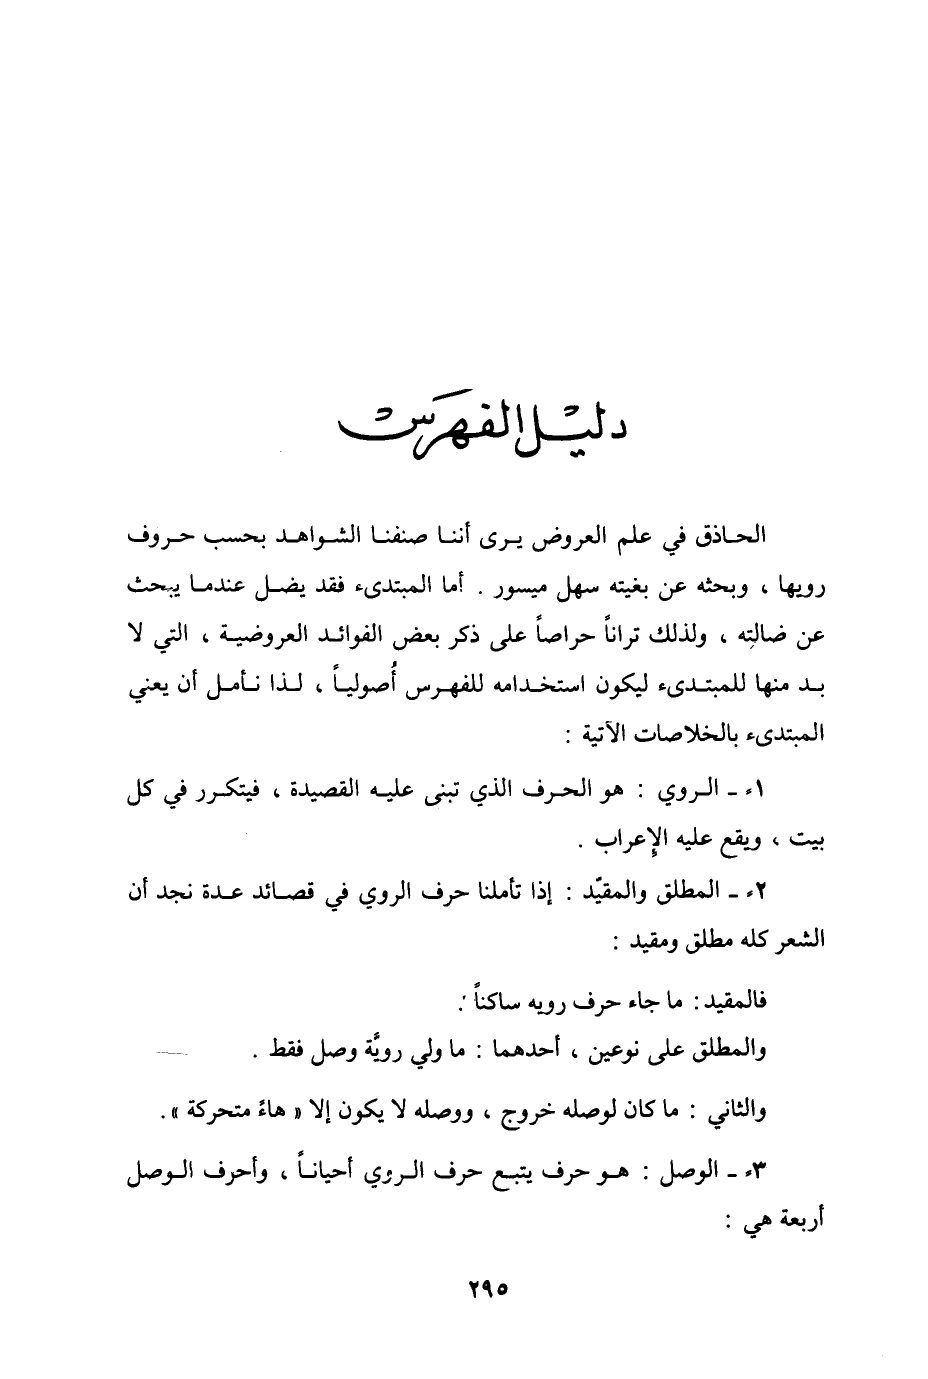 دليل الفهرس
الحاذق في علم العروض يرى أننا صنفنا الشواهد بحسب حروف
رويها ، وبحثه عن بغيته سهل ميسور . أما المبتدىء فقد يضل عندما يبحث
عن ضالتِه ، ولذلك تراناً حراصاً على ذكر بعض الفوائد العروضية ، التي لا
بد منها للمبتدىء ليكون استخدامه للفهرس أُصولياً ، لذا نأمل أن يعني
المبتدىء بالخلاصات الآتية :
١ء - الروي : هو الحرف الذي تبنى عليه القصيدة ، فيتكرر في كل
بيت ، ويقع عليه الإعراب .
٢ء - المطلق والمقيّد : إذا تأملنا حرف الروي في قصائد عدة نجد أن
الشعر كله مطلق ومقيد :
فالمقيد : ما جاء حرف رويه ساكناً .
والمطلق على نوعين ، أحدهما : ما ولي رويَّة وصل فقط .
والثاني : ما كان لوصله خروج ، ووصله لا يكون إلا « هاءً متحركة » .
٣ء - الوصل : هو حرف يتبع حرف الروي أحياناً ، وأحرف الوصل
أربعة هي :
٢٩٥